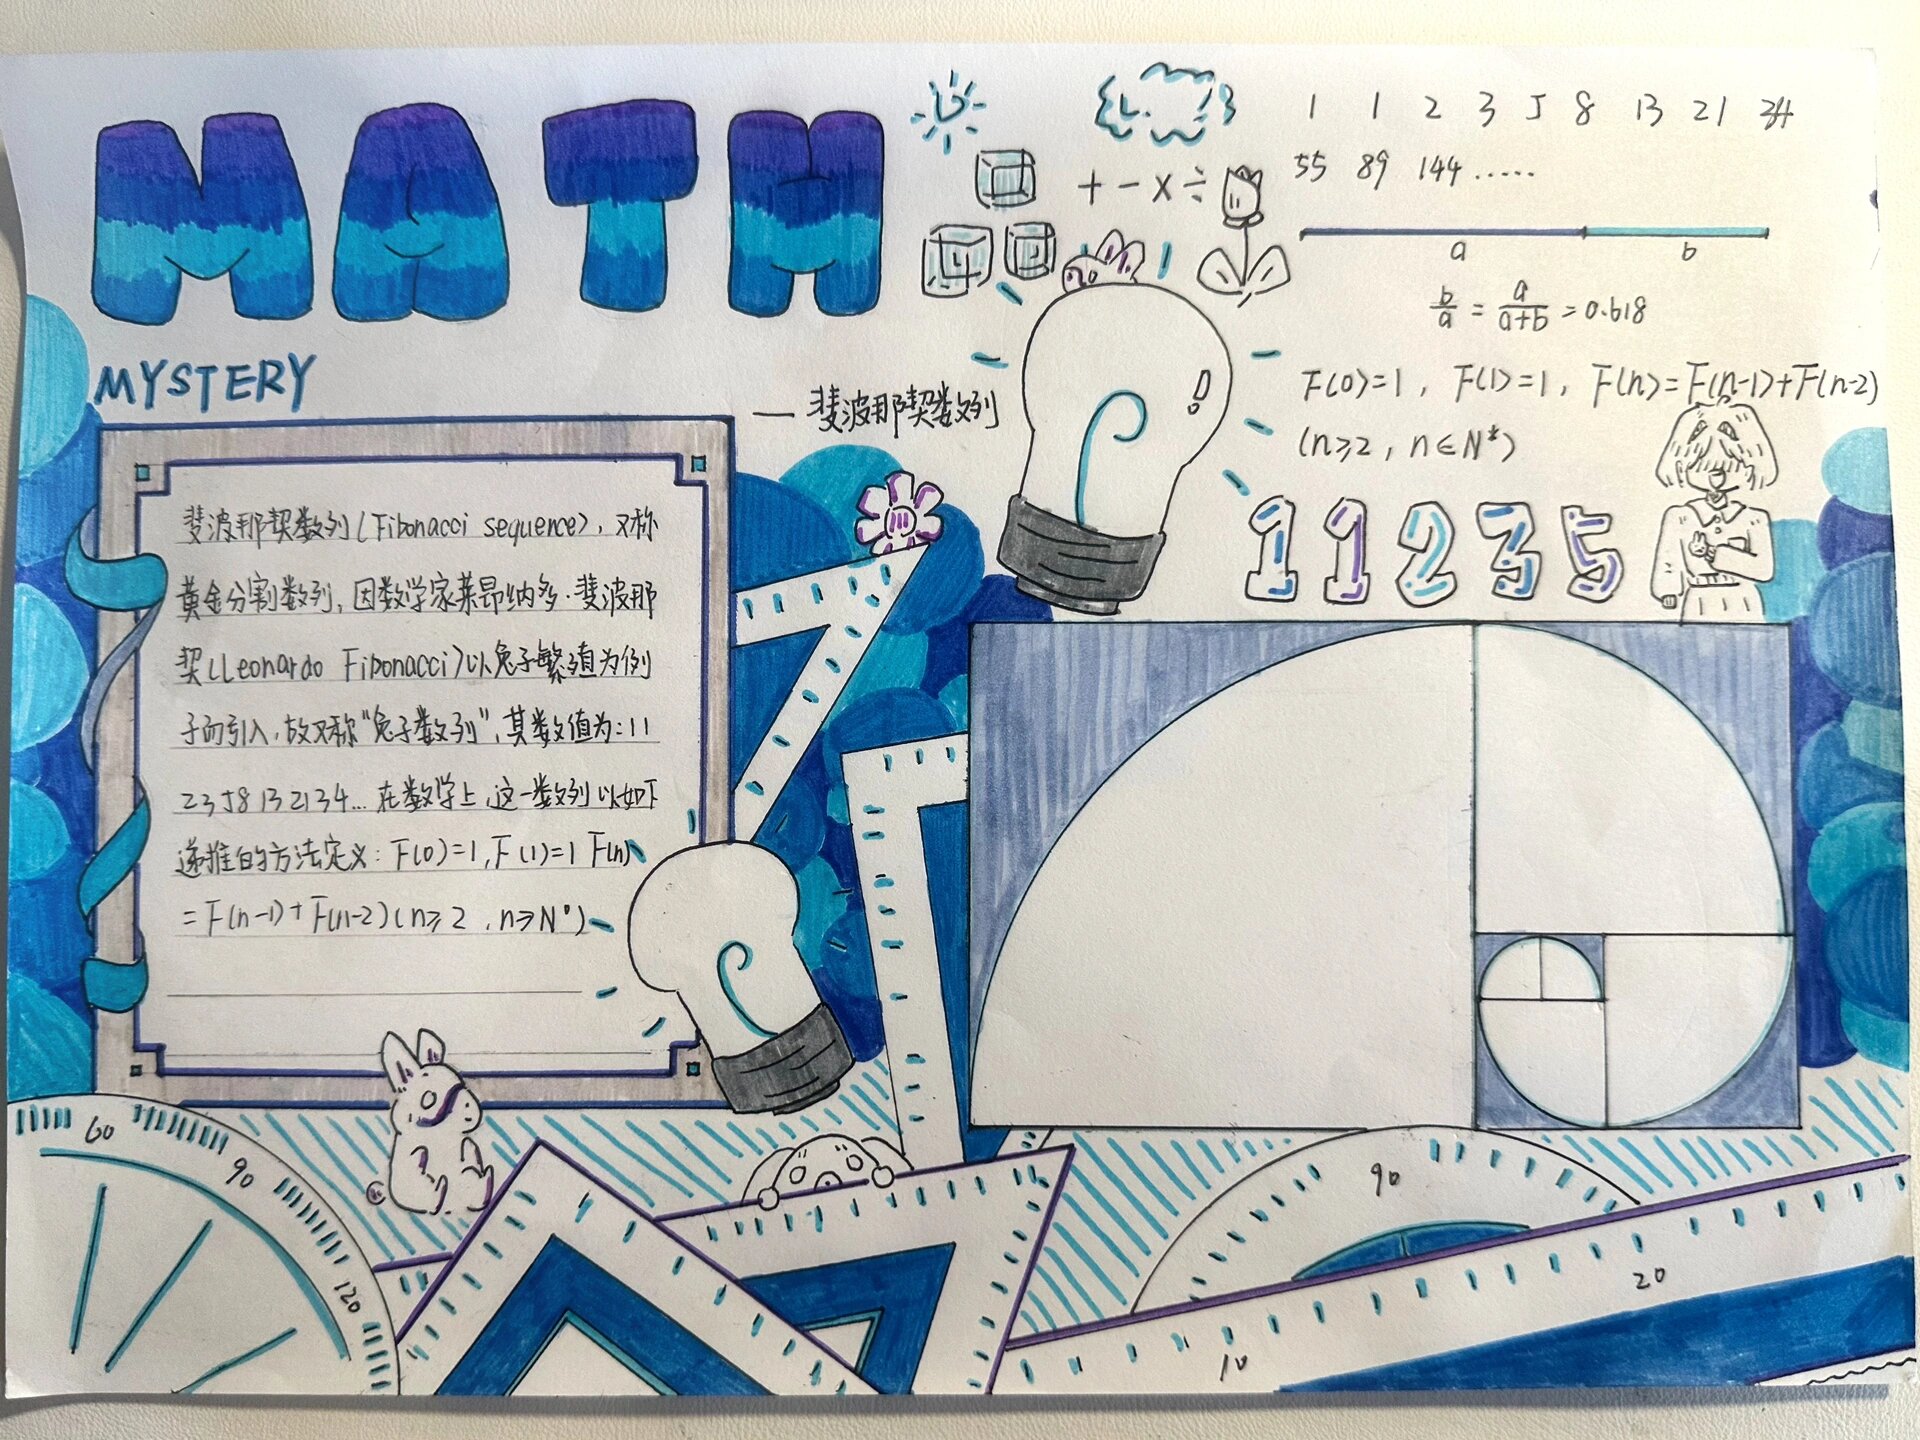 MATH
MYSTERY
— 斐波那契数列
斐波那契数列(Fibonacci sequence),又称
黄金分割数列,因数学家莱昂纳多·斐波那
契(Leonardo Fibonacci)以兔子繁殖为例
子而引入,故又称"兔子数列",其数值为:11
2358132134...在数学上,这一数列以如下
递推的方法定义:F(0)=1,F(1)=1 F(n)
=F(n-1)+F(n-2)(n≥2,n≥N*)
+ - × ÷
1 1 2 3 5 8 13 21 34
55 89 144 ......
a b
b/a = a/a+b = 0.618
F(0)=1, F(1)=1, F(n)=F(n-1)+F(n-2)
(n≥2, n∈N*)
1 1 2 3 5
!
60 90 120
90
10 20